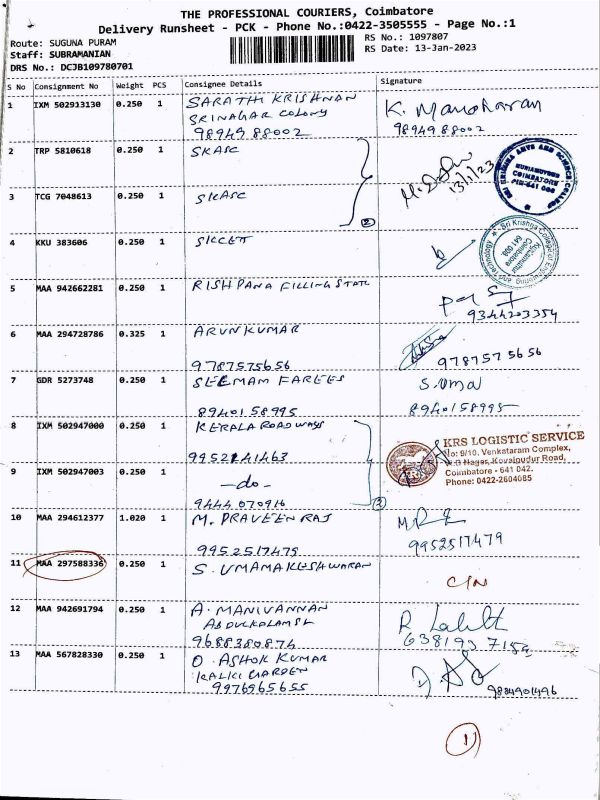 THE PROFESSIONAL COURIERS, Coimbatore
Delivery Runsheet - PCK - Phone No.:0422-3505555 - Page No.:1
Route: SUGUNA PURAM
Staff: SUBRAMANIAN
DRS No.: DCJB109780701
RS No.: 1097807
RS Date: 13-Jan-2023
S No Consignment No Weight PCS Consignee Details Signature
1 IXM 502913130 0.250 1 SARATHI KRISHNAN K. Manoharan
SRINAGAR COLONY
9894988002 9894988002
2 TRP 5810618 0.250 1 SKASC
13/1/23
SRI KRISHNA ARTS AND SCIENCE COLLEGE
KUNIAMUTHUR
COIMBATORE
PIN-641 008
3 TCG 7048613 0.250 1 SKASC
2
4 KKU 383606 0.250 1 SKCET
Sri Krishna College of Engineering and Technology
Kuniamuthur
Coimbatore
641 008
5 MAA 942662281 0.250 1 RISHPANA FILLING STAT
9344203354
6 MAA 294728786 0.325 1 ARUN KUMAR
9787575656 9787575656
7 GDR 5273748 0.250 1 SLEEMAM FAREES S. Uma
8940158995 8940158995
8 IXM 502947000 0.250 1 KERALA ROADWAYS
9952141463
KRS LOGISTIC SERVICE
No: 9/10, Venkataram Complex,
K.G Nagar, Kovaipudur Road,
Coimbatore - 641 042.
Phone: 0422-2604085
9 IXM 502947003 0.250 1 -do-
9444070916
3
10 MAA 294612377 1.020 1 M. PRAVEEN RAJ
9952517479 9952517479
11 MAA 297588336 0.250 1 S. UMAMAKESHWARAN
C/N
12 MAA 942691794 0.250 1 A. MANIVANNAN
ABDULKALAM ST
9688380874
13 MAA 567828330 0.250 1 O. ASHOK KUMAR
KALKI GARDEN
9976965655 9884901496
11